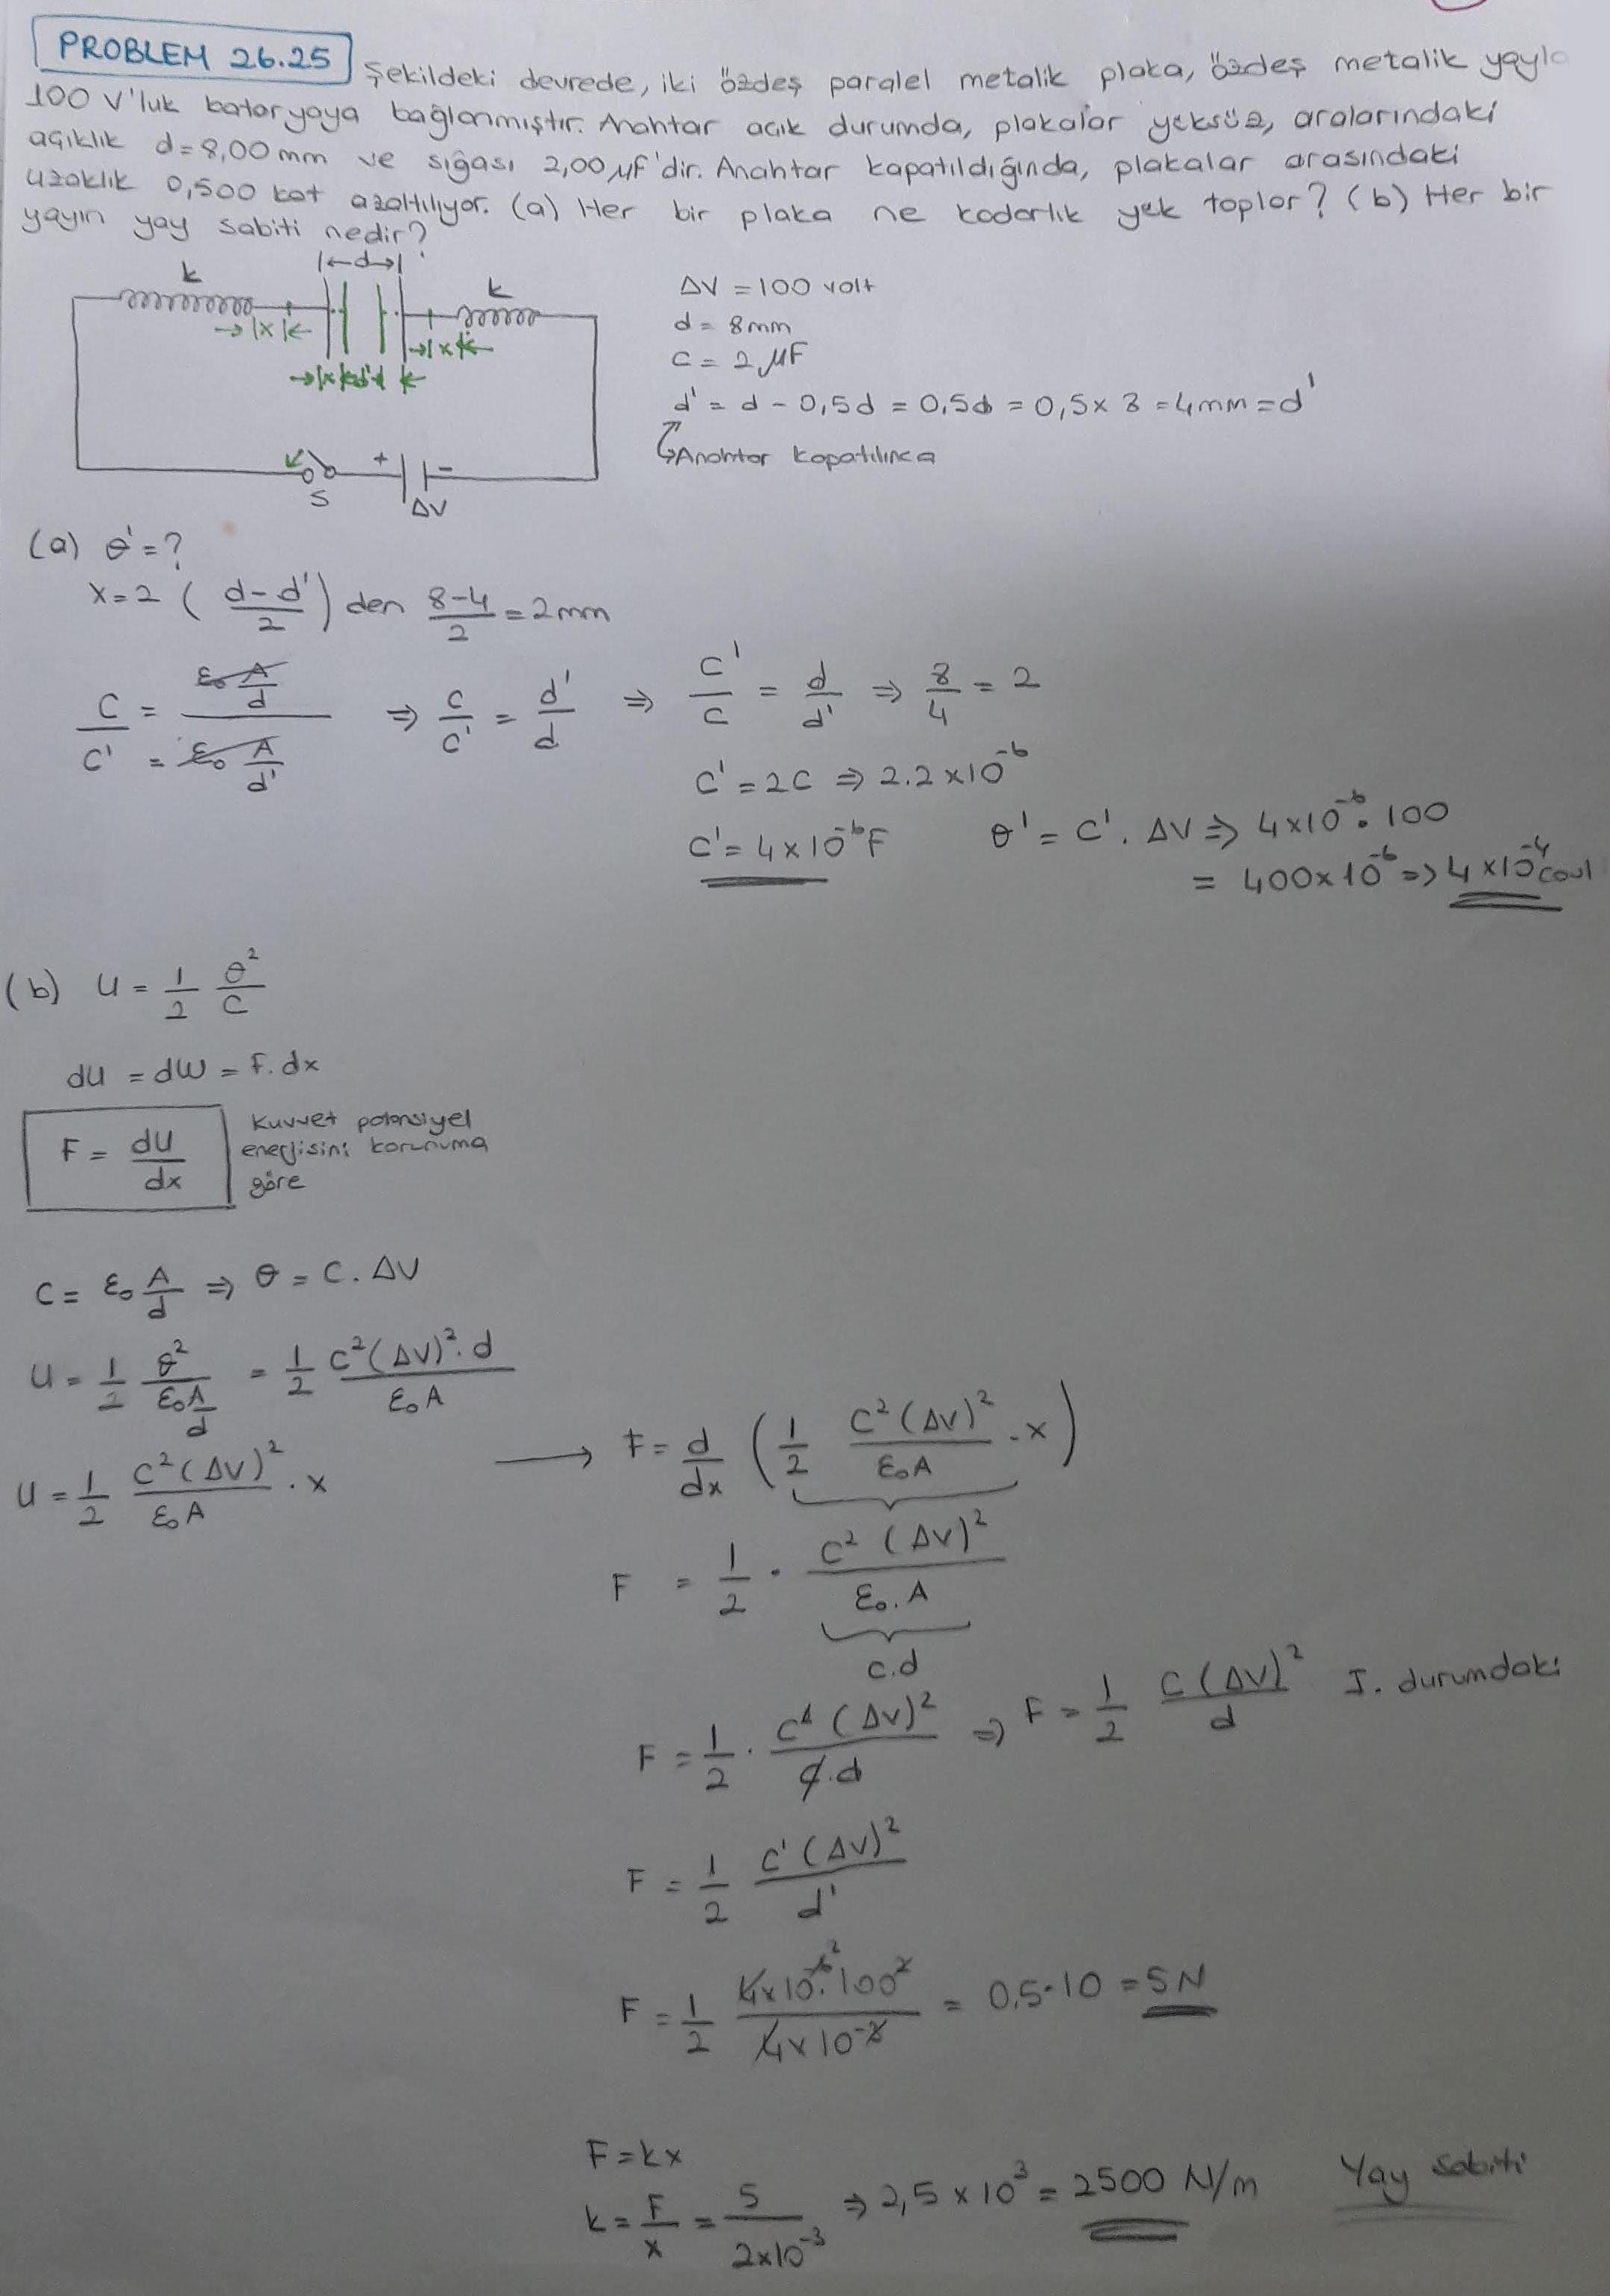 PROBLEM 26.25 Şekildeki devrede, iki özdeş paralel metalik plaka, özdeş metalik yayla
100 V'luk bataryaya bağlanmıştır. Anahtar açık durumda, plakalar yüksüz, aralarındaki
açıklık d=8,00 mm ve sığası 2,00 μF'dir. Anahtar kapatıldığında, plakalar arasındaki
uzaklık 0,500 kat azaltılıyor. (a) Her bir plaka ne kadarlık yük toplar? (b) Her bir
yayın yay sabiti nedir?
|←d→|
k
k
→|x|←
→|x|←
→|x|←d'→| |←
S
+
-
ΔV
ΔV = 100 volt
d = 8mm
C = 2 μF
d' = d - 0,5d = 0,5d = 0,5 x 8 = 4mm = d'
Anahtar kapatılınca
(a) Q' = ?
x = 2 ( (d-d')/2 ) den (8-4)/2 = 2mm
C/C' = (ε₀ A/d) / = (ε₀ A/d') ⇒ C/C' = d'/d ⇒ C'/C = d/d' ⇒ 8/4 = 2
C' = 2C ⇒ 2.2 x 10⁻⁶
C' = 4 x 10⁻⁶ F
Q' = C' . ΔV ⇒ 4x10⁻⁶ . 100
= 400x10⁻⁶ ⇒ 4 x10⁻⁴ coul
(b) U = 1/2 Q²/C
dU = dW = F.dx
F = dU/dx
Kuvvet potansiyel
enerjisini korunuma
göre
C = ε₀ A/d ⇒ Q = C . ΔV
U = 1/2 Q²/(ε₀ A/d) = 1/2 C²(ΔV)².d / ε₀ A
U = 1/2 C²(ΔV)²/ε₀ A . x
→ F = d/dx ( 1/2 C²(ΔV)²/ε₀ A . x )
F = 1/2 . C² (ΔV)²/ε₀ . A
C.d
F = 1/2 . C² (ΔV)²/C.d ⇒ F = 1/2 C(ΔV)²/d I. durumdaki
F = 1/2 C' (ΔV)²/d'
F = 1/2 4x10⁻⁶.100²/4x10⁻³ = 0,5.10 = 5N
F = kx
k = F/x = 5/2x10⁻³ ⇒ 2,5 x 10³ = 2500 N/m Yay sabiti